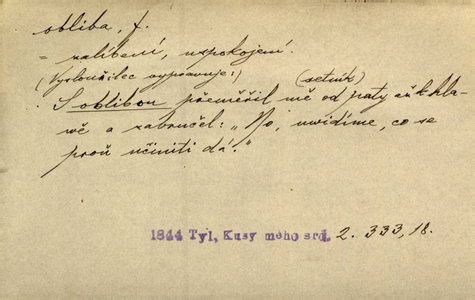 obliba, f.
= zalíbení, uspokojení.
(Vysloužilec vypravuje:) (setník)
S oblibou přeměřil mě od paty až k hla-
vě a zabručel: „No, uvidíme, co se
proň učiniti dá.“
1844 Tyl, Kusy mého srd. 2. 333, 18.